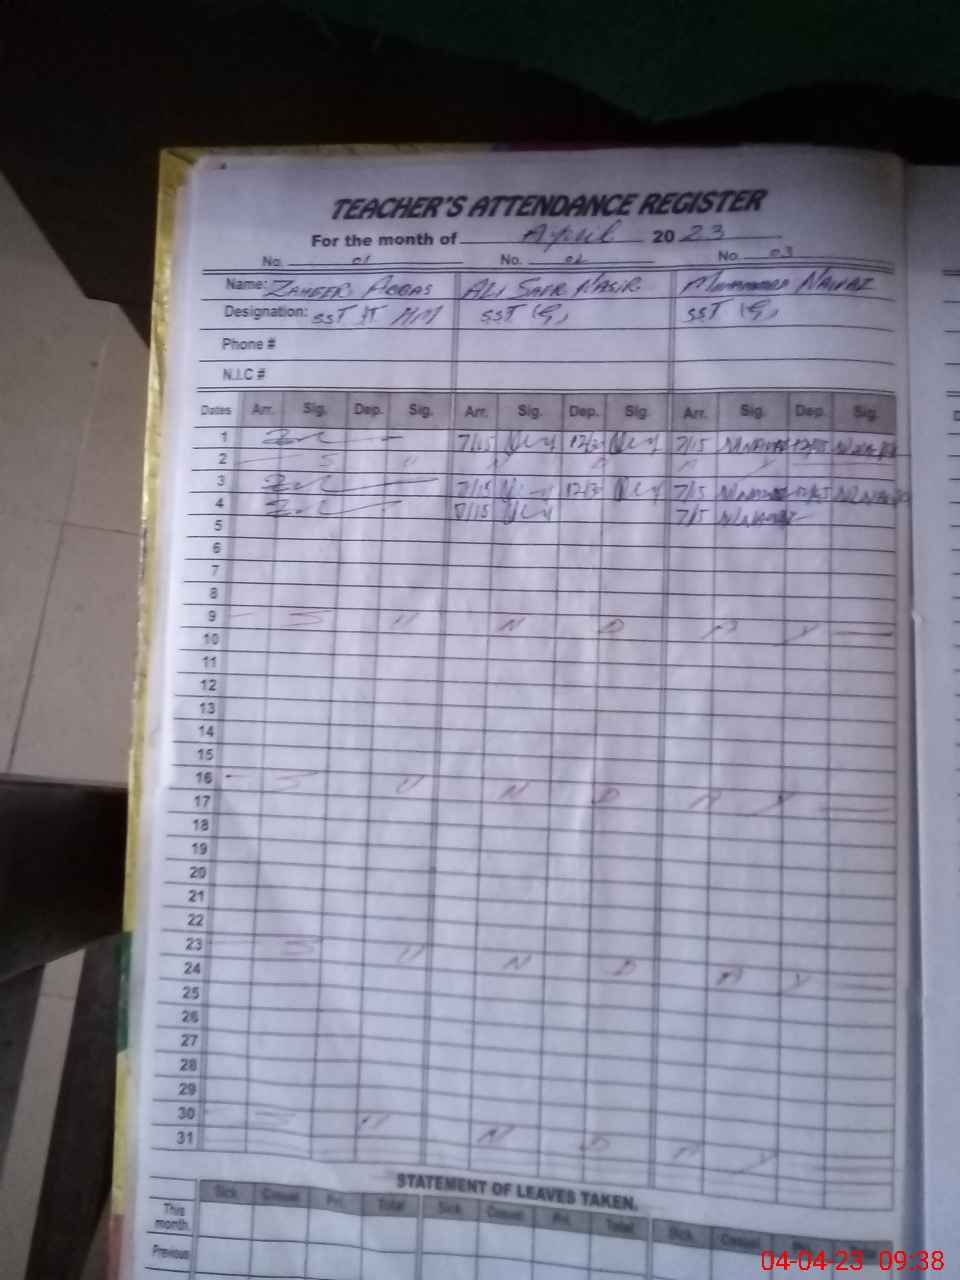 TEACHER'S ATTENDANCE REGISTER
For the month of April 2023
No. 01 No. 02 No. 03
Name: ZAHEER ABBAS ALI SAFR NASIR Muhammad NAWAZ
Designation: SST IT HM SST (G) SST (G)
Phone #
N.I.C #
Dates Arr. Sig. Dep. Sig. Arr. Sig. Dep. Sig. Arr. Sig. Dep. Sig.
1 7/15 7/15
2 S U N D A Y
3 7/15 7/15
4 7/15 7/15
5
6
7
8
9 S U N D A Y
10
11
12
13
14
15
16 S U N D A Y
17
18
19
20
21
22
23 S U N D A Y
24
25
26
27
28
29
30 S U N D A Y
31
STATEMENT OF LEAVES TAKEN.
Sick Casual Pri. Total Sick Casual Pri. Total Sick Casual
This
month.
Previous
04-04-23 09:38